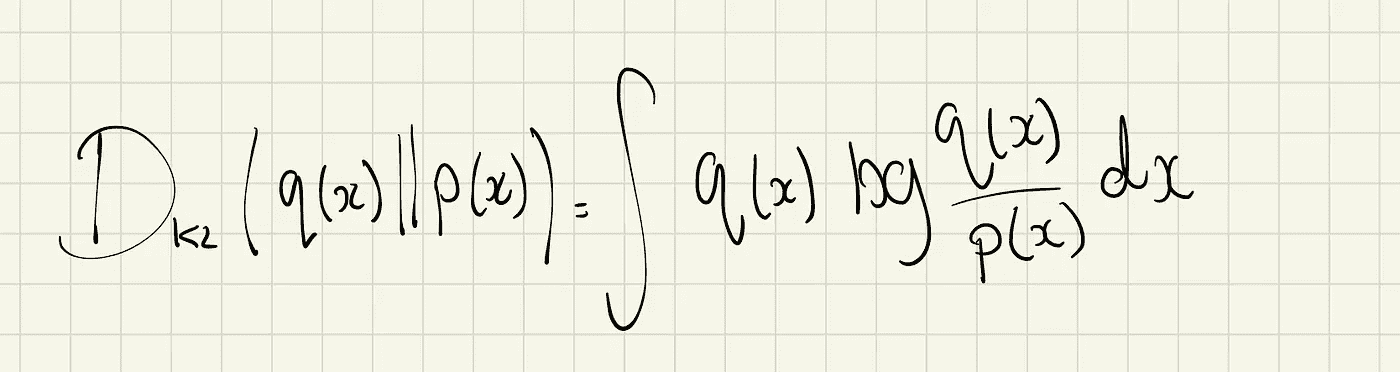 D_KL(q(x)||p(x)) = ∫ q(x) log q(x)/p(x) dx